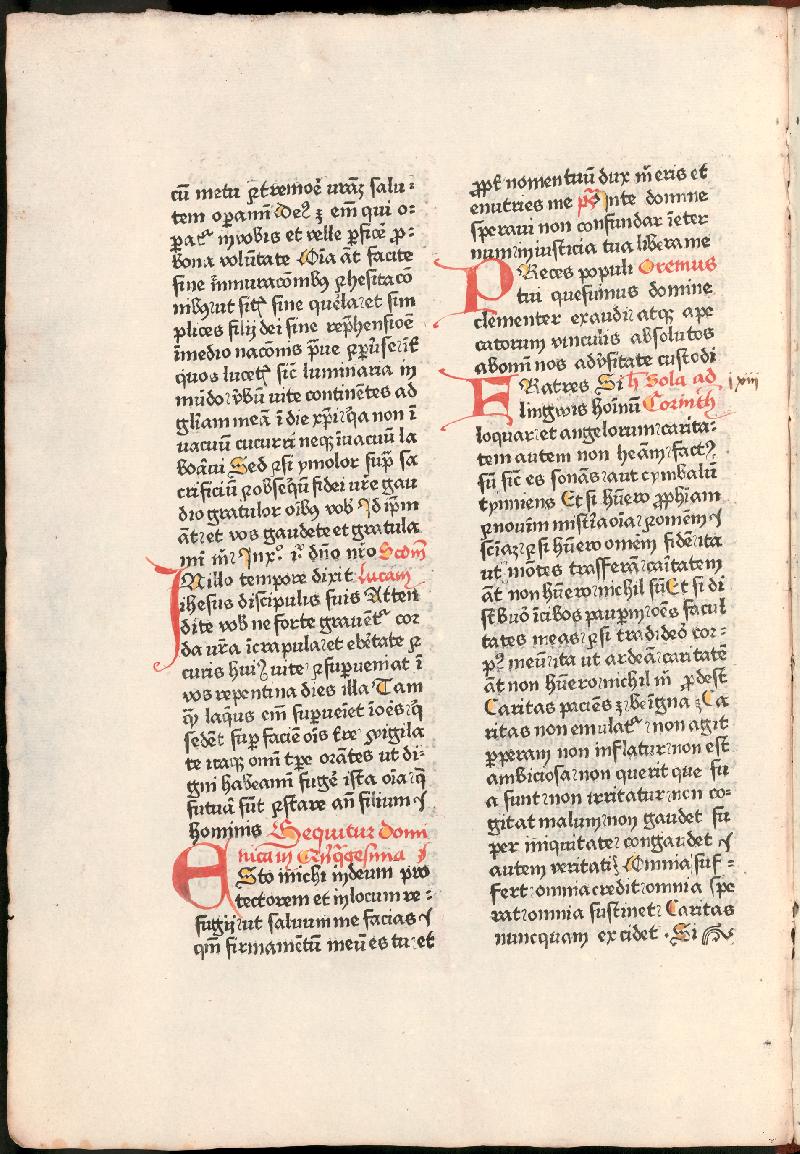 cū metu ⁊ tremoē urāȝ salu⸗
tem opamī Deꝰ ⁊ em̄ qui o⸗
ꝑatᷣ in vobis et velle ꝑficeͤ ꝓ⸗
bona volūtate Oīa āt facite
sine īmuracōnibꝯ ⁊hesitacō
nibꝯ ut sitꝭ sine querla et sim
plices filij dei sine rep̄hensiōe
ī medio nacōnis praue ⁊ puerse īt̄
quos lucetꝭ sic̄ luminaria in
mūdo vbū uite continentes ad
gliam meā ī die xp̄i qa non ī
vacuū cucurri neqꝫ ī vacuū la
boāui Sed ⁊ si ymolor sup̄ sa
crificiū ⁊ obseqū fidei urē gau
deo gratulor oībꝯ vob̄ Id ip̄m
āt et vos gaudete et gratula
mī m̄ Inxͦ ī dn̄o nr̄o Scdm̄
IN illo tempore dixit Lucam
ihesus discipulis suis Atten
dite vob̄ ne forte grauentᷣ cor
da ur̄a ī crapula et ebetate ⁊
curis huiꝰ uite ⁊ superueniat ī
vos repentina dies illa Tam
qꝫ laqus em̄ superueīet ī oēs q̄
sedēt sup̄ faciē oīs tre vigila
te itaqꝫ omī tp̄e orātes ut di⸗
gni habeamī fugē ista oīa q̄
futuā sūt ⁊ stare an̄ filium
hominis Sequitur domi
nica in qnq̄gesima
ESto michi in deum pro
tectorem et in locum re⸗
fugij ut saluum me facias
qm̄ firmamētū meū es tu et
ꝓpt̄ nomen tuū dux m̄ eris et
enutries me ps̄ Inte domine
speraui non confundar ī eter
num in iusticia tua libera me
PReces populi Oremus
tui quesumus domine
clementer exaudi atqꝫ a pe
catorum vinculis absolutos
ab omī nos adūsitate custodi
FRatres Si h̄ Sola ad xiii
lingwis hoīnū Corinth
loquar et angelorum carita⸗
tem autem non heām factꝯ
sū sic̄ es sonās aut cymbalū
tynniens Et si hūero ꝓphīam
⁊ nouim mistīa oīa ⁊ omēm
scīaȝ ⁊ si hūero omēm fidē ita
ut mōtes trasferā caītatem
āt non hūero nichil sū Et si di
st̄buō ī cibos paupm oēs facul
tates meas ⁊ si tradideō cor⸗
pꝯ meū ita ut ardeā caritatē
āt non hūero nichil m̄ ꝓdest
Caritas paciēs ⁊ beīgna ⁊ Ca
ritas non emulatᷣ non agit
ꝑperam non inflatur non est
ambiciosa non querit que su
a sunt non irritatur non co⸗
gitat malum non gaudet su
per iniquitate congaudet
autem veritati Omnia suf⸗
fert omnia credit omnia spe
rat omnia sustinet Caritas
nuncquam excidet . Si